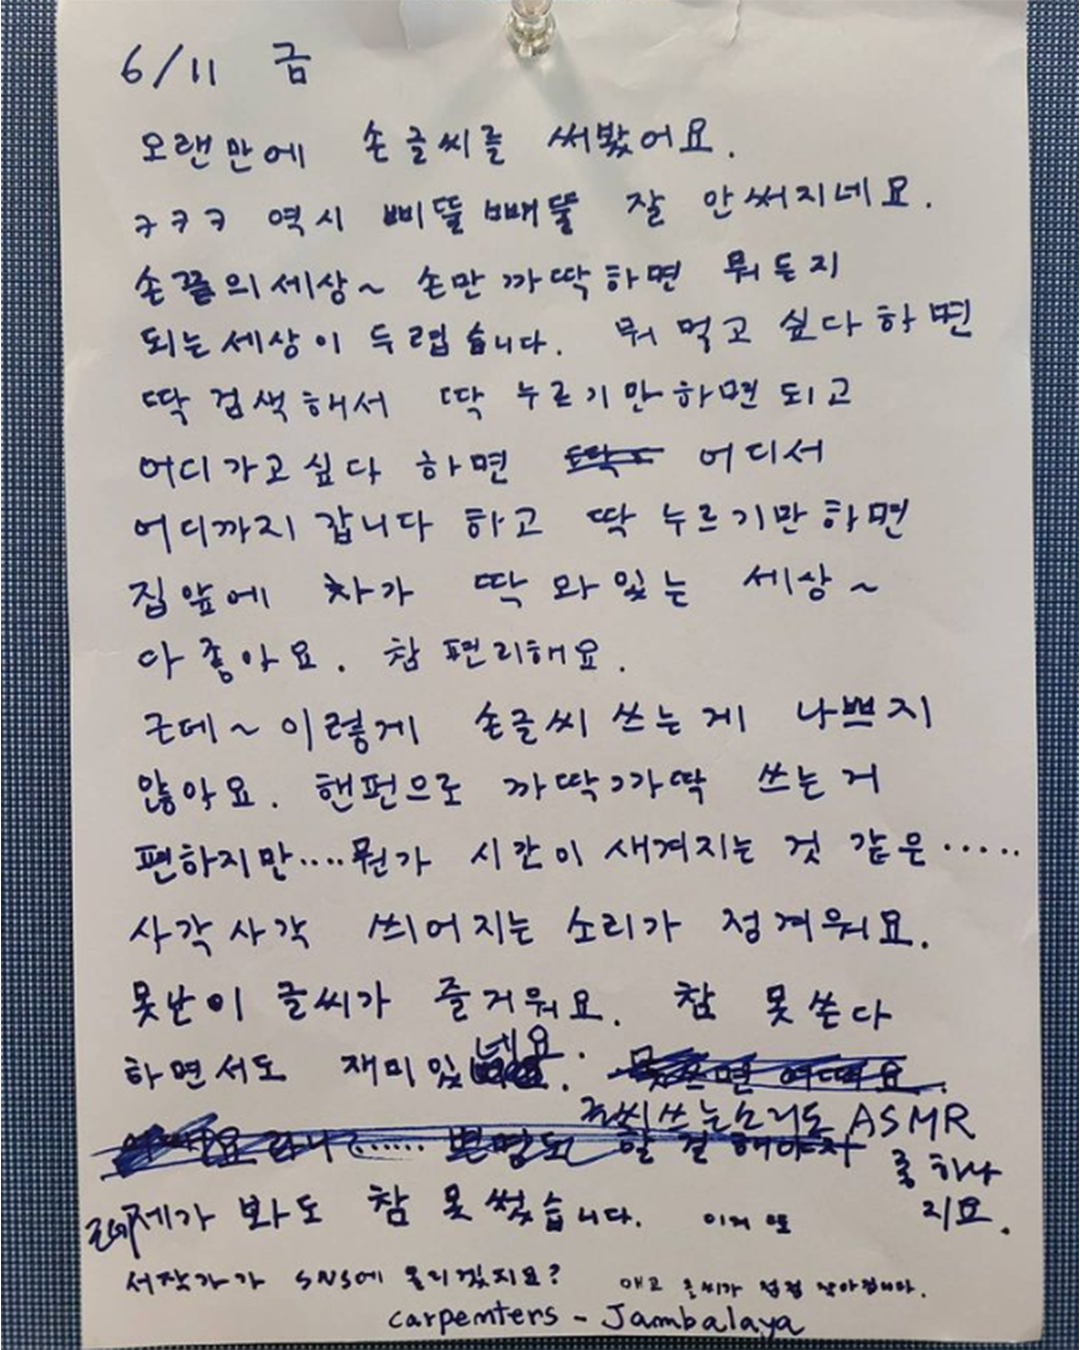 6/11 금
오랜만에 손글씨를 써봤어요.
ㅋㅋㅋ 역시 삐뚤빼뚤 잘 안써지네요.
손끝의세상~ 손만 까딱하면 뭐든지
되는세상이 두렵습니다. 뭐 먹고 싶다하면
딱 검색해서 딱 누르기만하면되고
어디가고싶다 하면 어디서
어디까지 갑니다 하고 딱 누르기만하면
집앞에 차가 딱 와있는 세상~
다 좋아요. 참 편리해요.
근데~이렇게 손글씨 쓰는게 나쁘지
않아요. 핸펀으로 까딱까딱 쓰는거
편하지만....뭔가 시간이 새겨지는 것 같은.....
사각사각 씌어지는 소리가 정겨워요.
못난이 글씨가 즐거워요. 참 못쓴다
하면서도 재미있네요.
글씨쓰는소리도 ASMR
중 하나
지요.
근데 제가 봐도 참 못 썼습니다. 이거 또
서작가가 SNS에 올리겠지요? 애고 글씨가 점점 작아집니다.
carpenters - Jambalaya